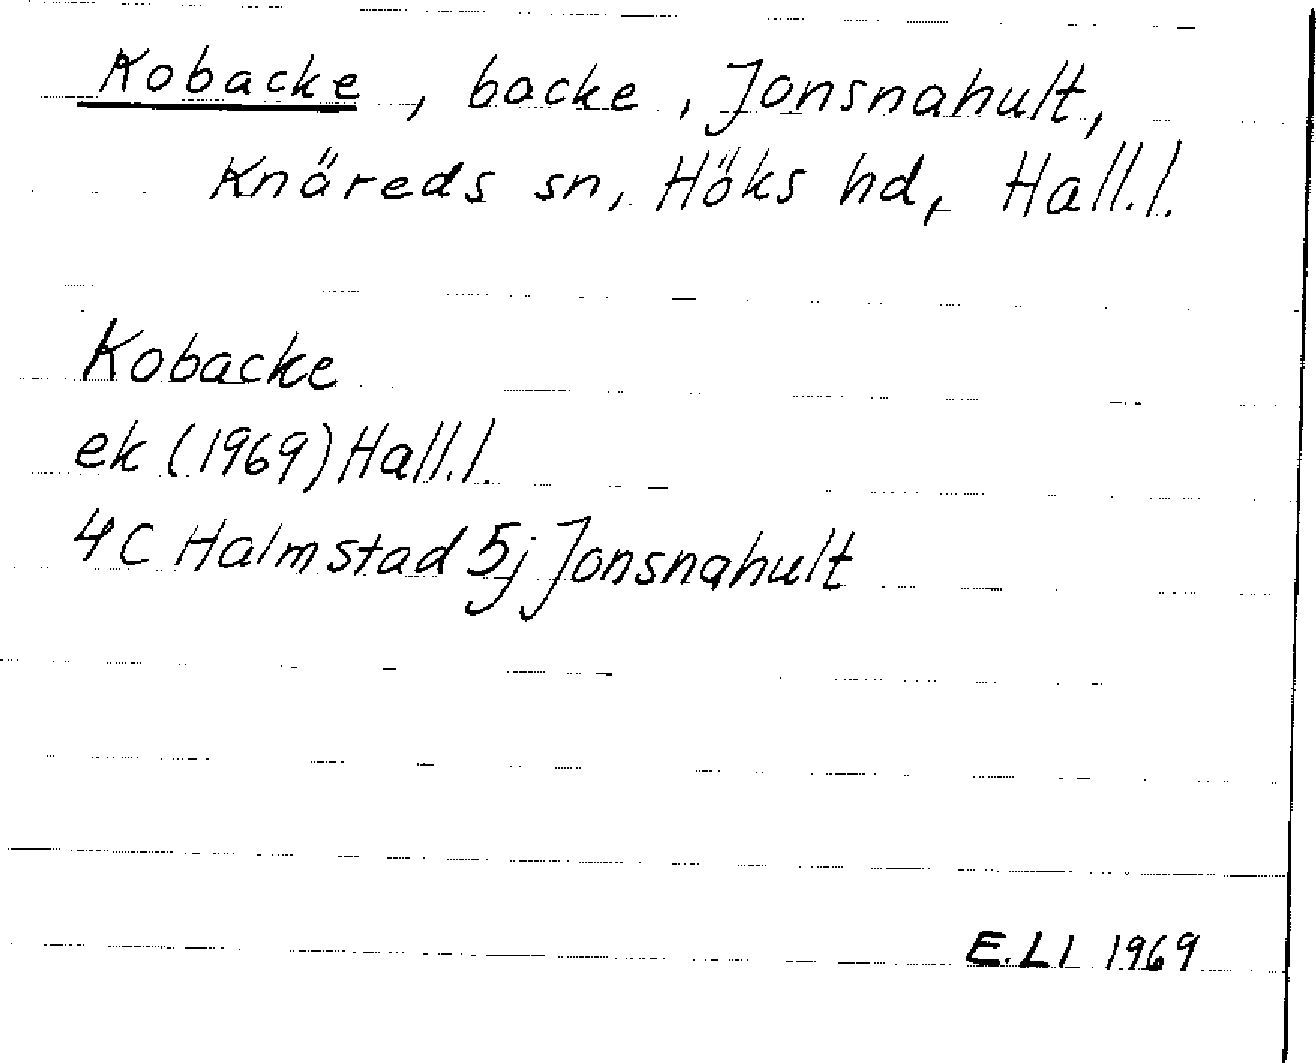 Kobacke, backe, Jonsnahult,
Knäreds sn, Höks hd, Hall.l.
Kobacke
ek (1969) Hall.l.
4C Halmstad 5j Jonsnahult
E.LI 1969